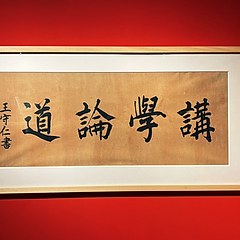 講學論道
王守仁書